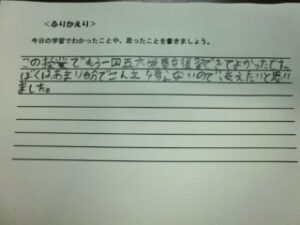 <ふりかえり>
今日の学習でわかったことや、思ったことを書きましょう。
この授業でもう一回五大栄養を復習できてよかったです。
ぼくはあまり自分でこん立を しないので、考えたいと思い
ました。